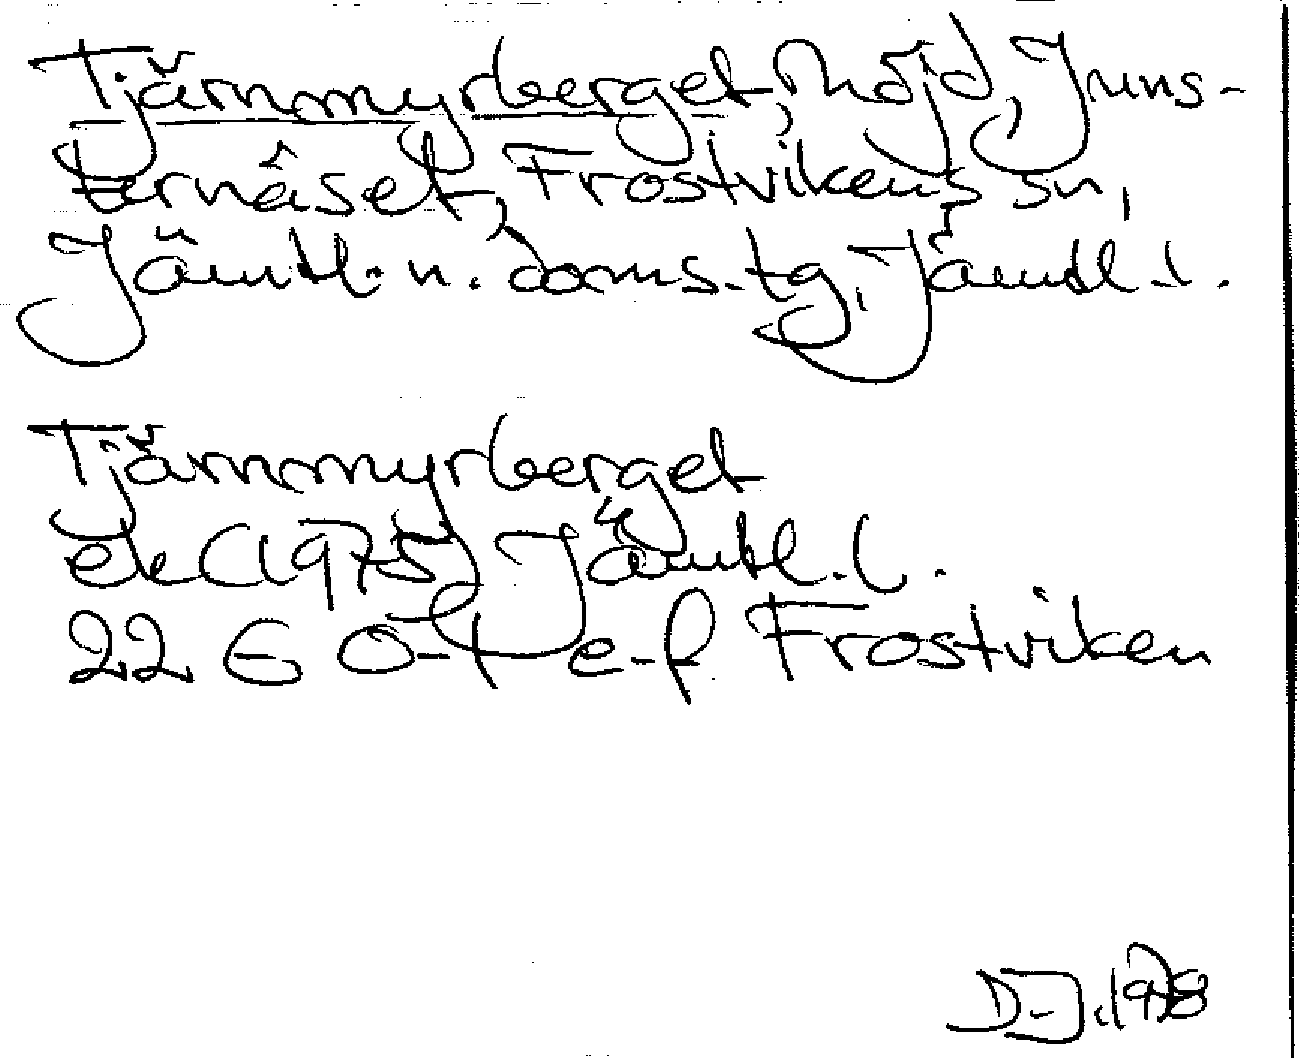 Tjärnmyrberget, höjd, Juns-
ternäset, Frostvikens sn,
Jämtl. n. doms. tg, Jämtl. l.
Tjärnmyrberget
ek (1975) Jämtl. l.
22 E 0-1 e-f Frostviken
D-J. 1978